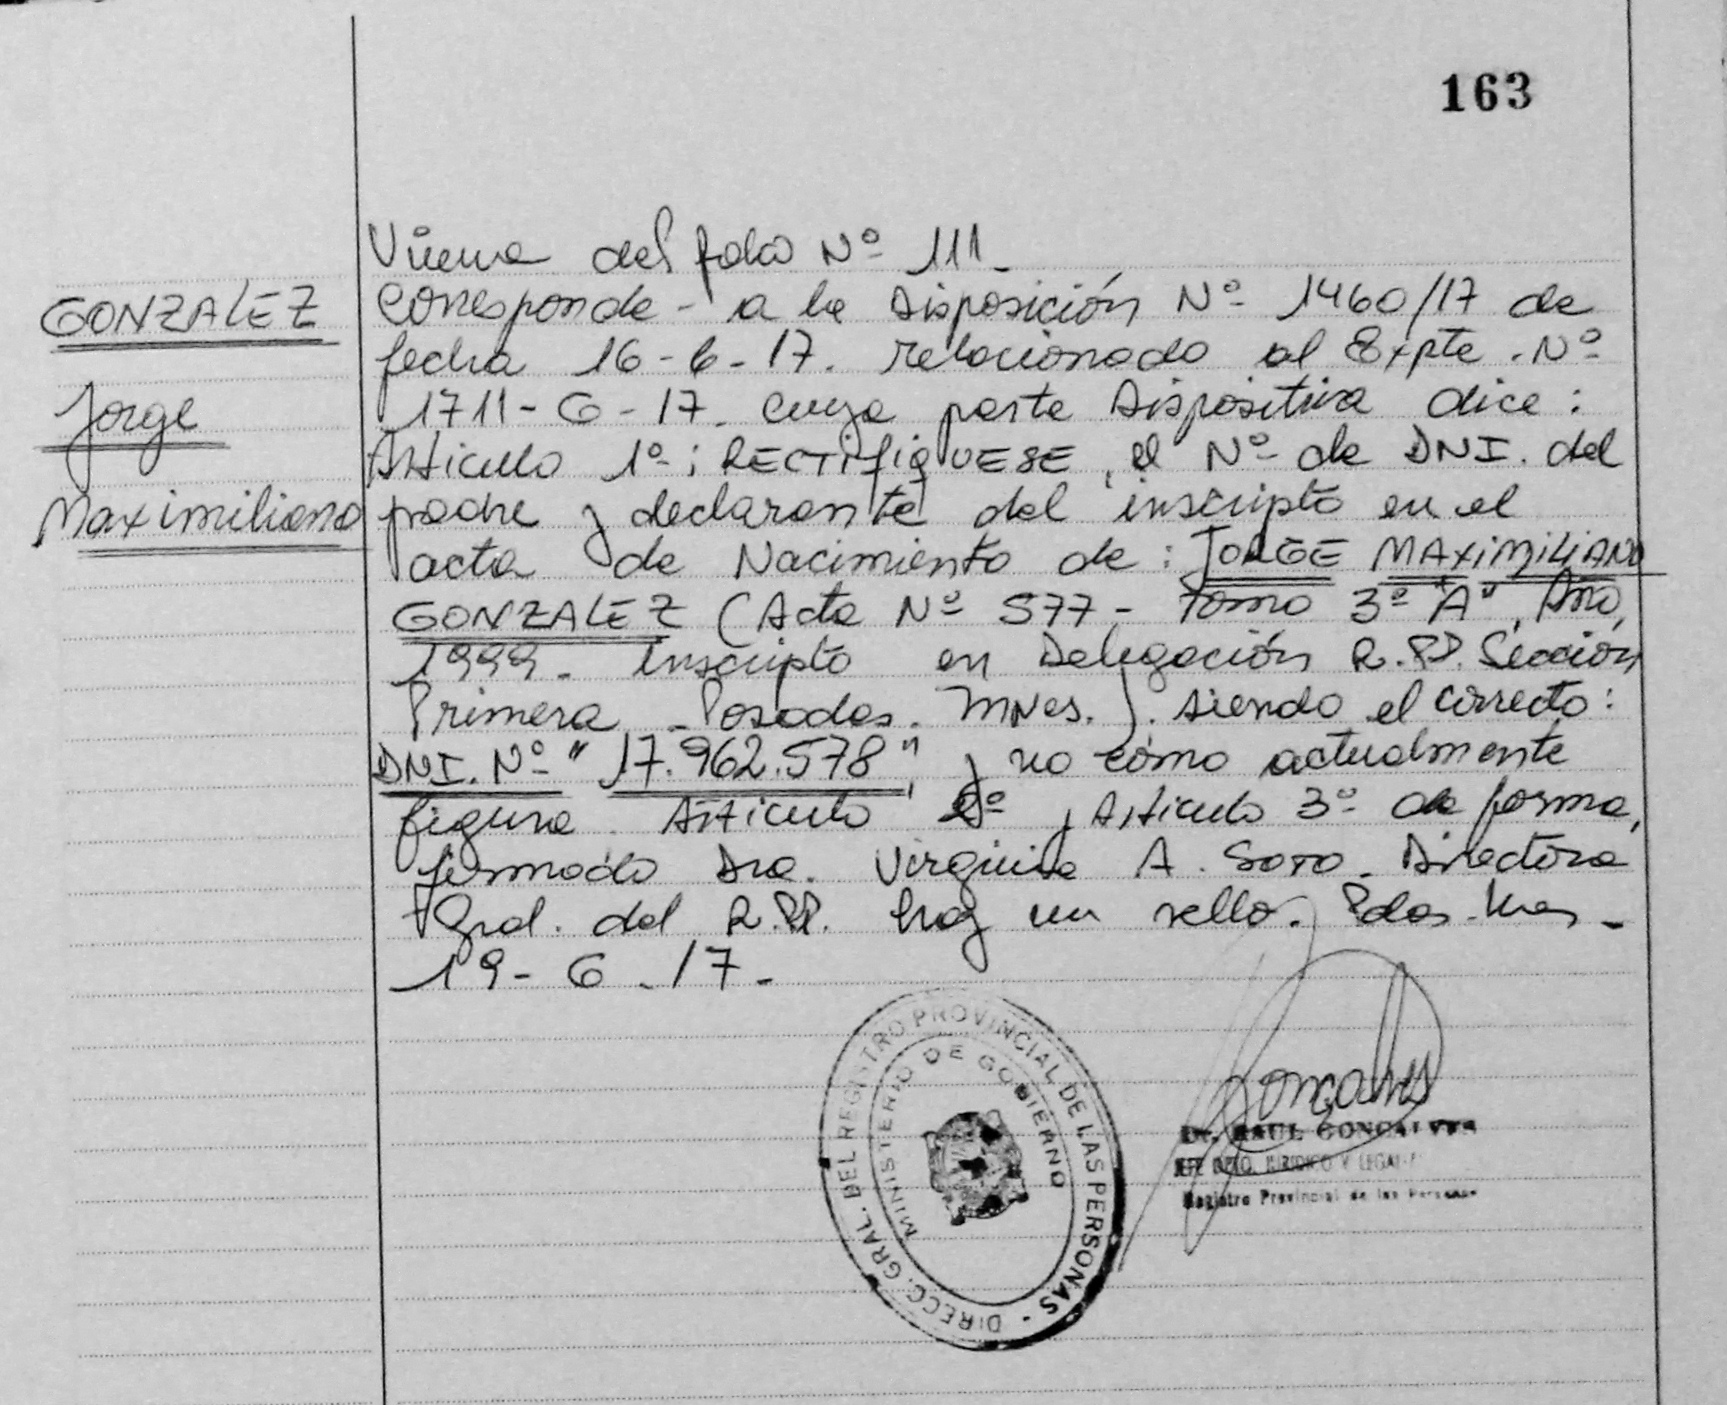 163
Viene del folio Nº 111_
GONZALEZ
Jorge
Maximiliano
Corresponde - a la Disposición Nº 1460/17 de
fecha 16-6-17. relacionado al Expte. Nº
1711-G-17. cuya parte Dispositiva dice:
Articulo 1º: RECTIFIQUESE, el Nº de DNI. del
padre y declarante del inscripto en el
acta de Nacimiento de: JORGE MAXIMILIANO
GONZALEZ (Acta Nº 577- Tomo 3º "A", Año,
1999. inscripto en Delegación R.PP. Sección
Primera - Posadas. Mnes.). siendo el correcto:
DNI. Nº "17.962.578", y no como actualmente
figura. Articulo 2º y Articulo 3º de forma,
firmado Dra. Virginia A. Soto. Directora
Gral. del R.PP. hay un sello. Pdas. Mnes_
19-6-17.-
DIRECC. GRAL. DEL REGISTRO PROVINCIAL DE LAS PERSONAS -
MINISTERIO DE GOBIERNO
Dr. RAUL GONCALVES
JEFE DPTO. JURIDICO Y LEGAL
Registro Provincial de las Personas